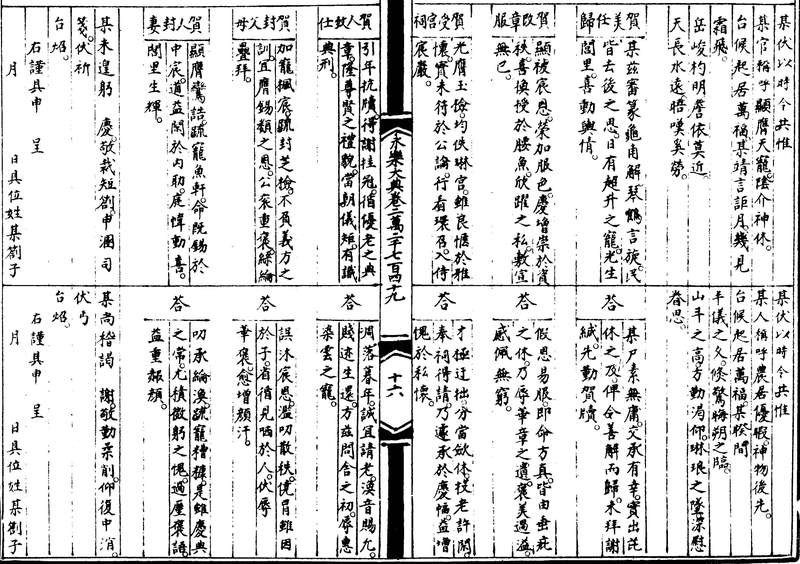 某伏以時令共惟
某官稱呼顯膺天寵陰介神休
台候起居萬福某靖言詎月幾見
霜飛
岳峻杓明詹依莫近
天長水遠晤嘆奚勞
賀美任歸
某茲審篆龜甫解琴鶴言旋民
皆去後之思日有超升之寵光生
閭里喜動輿情
賀改章服
顯被宸恩榮加服色慶增崇於貲
秩喜換授於腰魚欣躍之私敷宣
無已
賀受宮祠
光膺玉檢均佚琳宮雖良愜於雅
懷實未符於公論行看環召入侍
宸嚴
永樂大典卷二萬二千七百四十九
十六
賀人致仕
引年抗牘得謝挂冠循優老之典
章隆尊賢之禮貌當朝儀矩有識
典刑
賀封父母
加寵楓宸疏封芝檢不負義方之
訓宜膺錫類之恩公衮重褒綵綸
疊拜
賀人封妻
顯膺鸞誥疏寵魚軒命既錫於
中宸道益閑於內助庭幃動喜
閭里生輝
某未遑躬 慶敬裁短劄申溷司
箋伏祈
台炤
右謹具申 呈
月 日具位姓某劄子
某伏以時令共惟
某人稱呼農若優暇神物後先
台候起居萬福某睽間
丰儀之久倏驚梅朔之臨
山斗之高方勤渴仰琳琅之墜深慰
眷思
荅
某尸素無庸交承有幸實出芘
休之及俾令善解而歸未拜謝
緘先勤賀牘
荅
假恩易服即命方真皆由垂庇
之休乃辱華章之遺褒美過溢
感佩無窮
荅
才極迂拙分當歛体技老許閑
奉祠得請乃遽承於慶幅益增
愧於私懷
荅
凋落暮年誠宜請老渙音賜允
賤迹生還方茲問舍之初辱惠
染雲之寵
荅
誤沐宸恩濫叨散秩僥冒雖因
於子省循見哂於人伏辱
華褒愈增顏汗
荅
叨承綸渙疏寵糟糠是雖慶典
之常尤積微躬之愧過廑褒語
益重赧顏
某尚稽謁 謝敬勤柔削仰復中涓
伏丐
台炤
右謹具申 呈
月 日具位姓某劄子